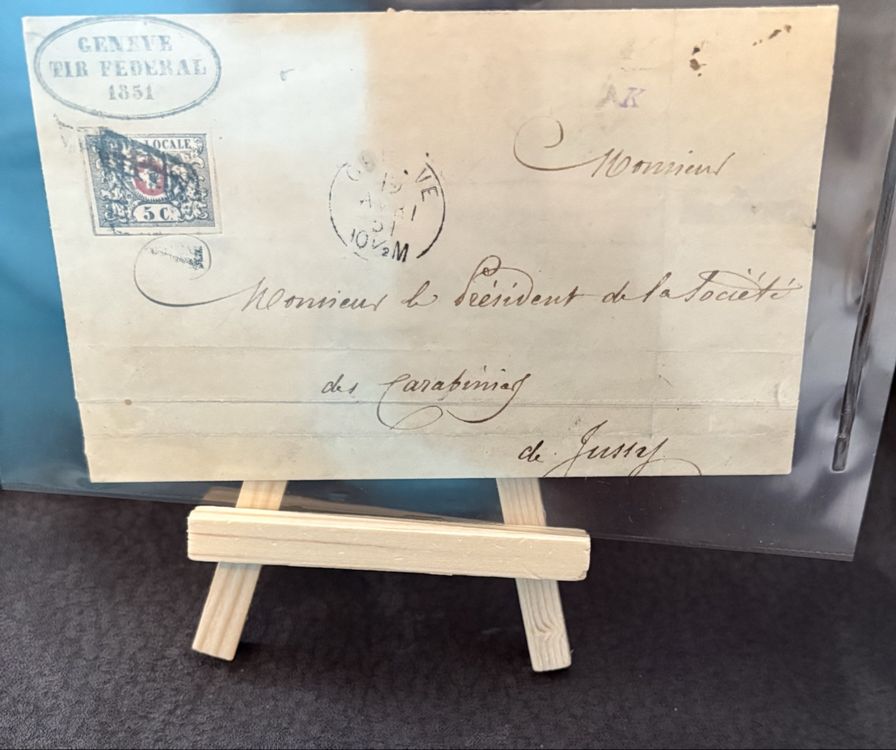 GENEVE
TIR FEDERAL
1851
AK
LOCALE
5 C
GENEVE
19
51
10½M
Monsieur
Monsieur le Président de la Société
des Carabiniers
de Jussy